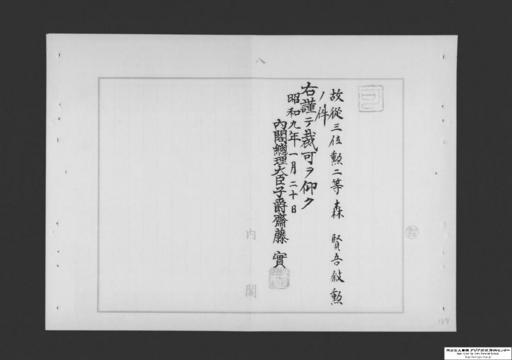 故從三位勲二等森 賢吾敍勲
ノ件
右謹テ裁可ヲ仰ク
昭和九年一月二十日
內閣總理大臣子爵齋藤 實
内閣